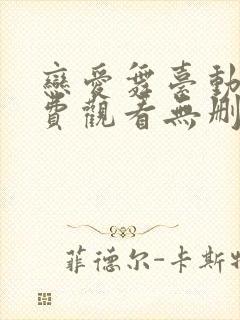 戀愛舞臺動
費觀看無刪
菲德尔-卡斯特